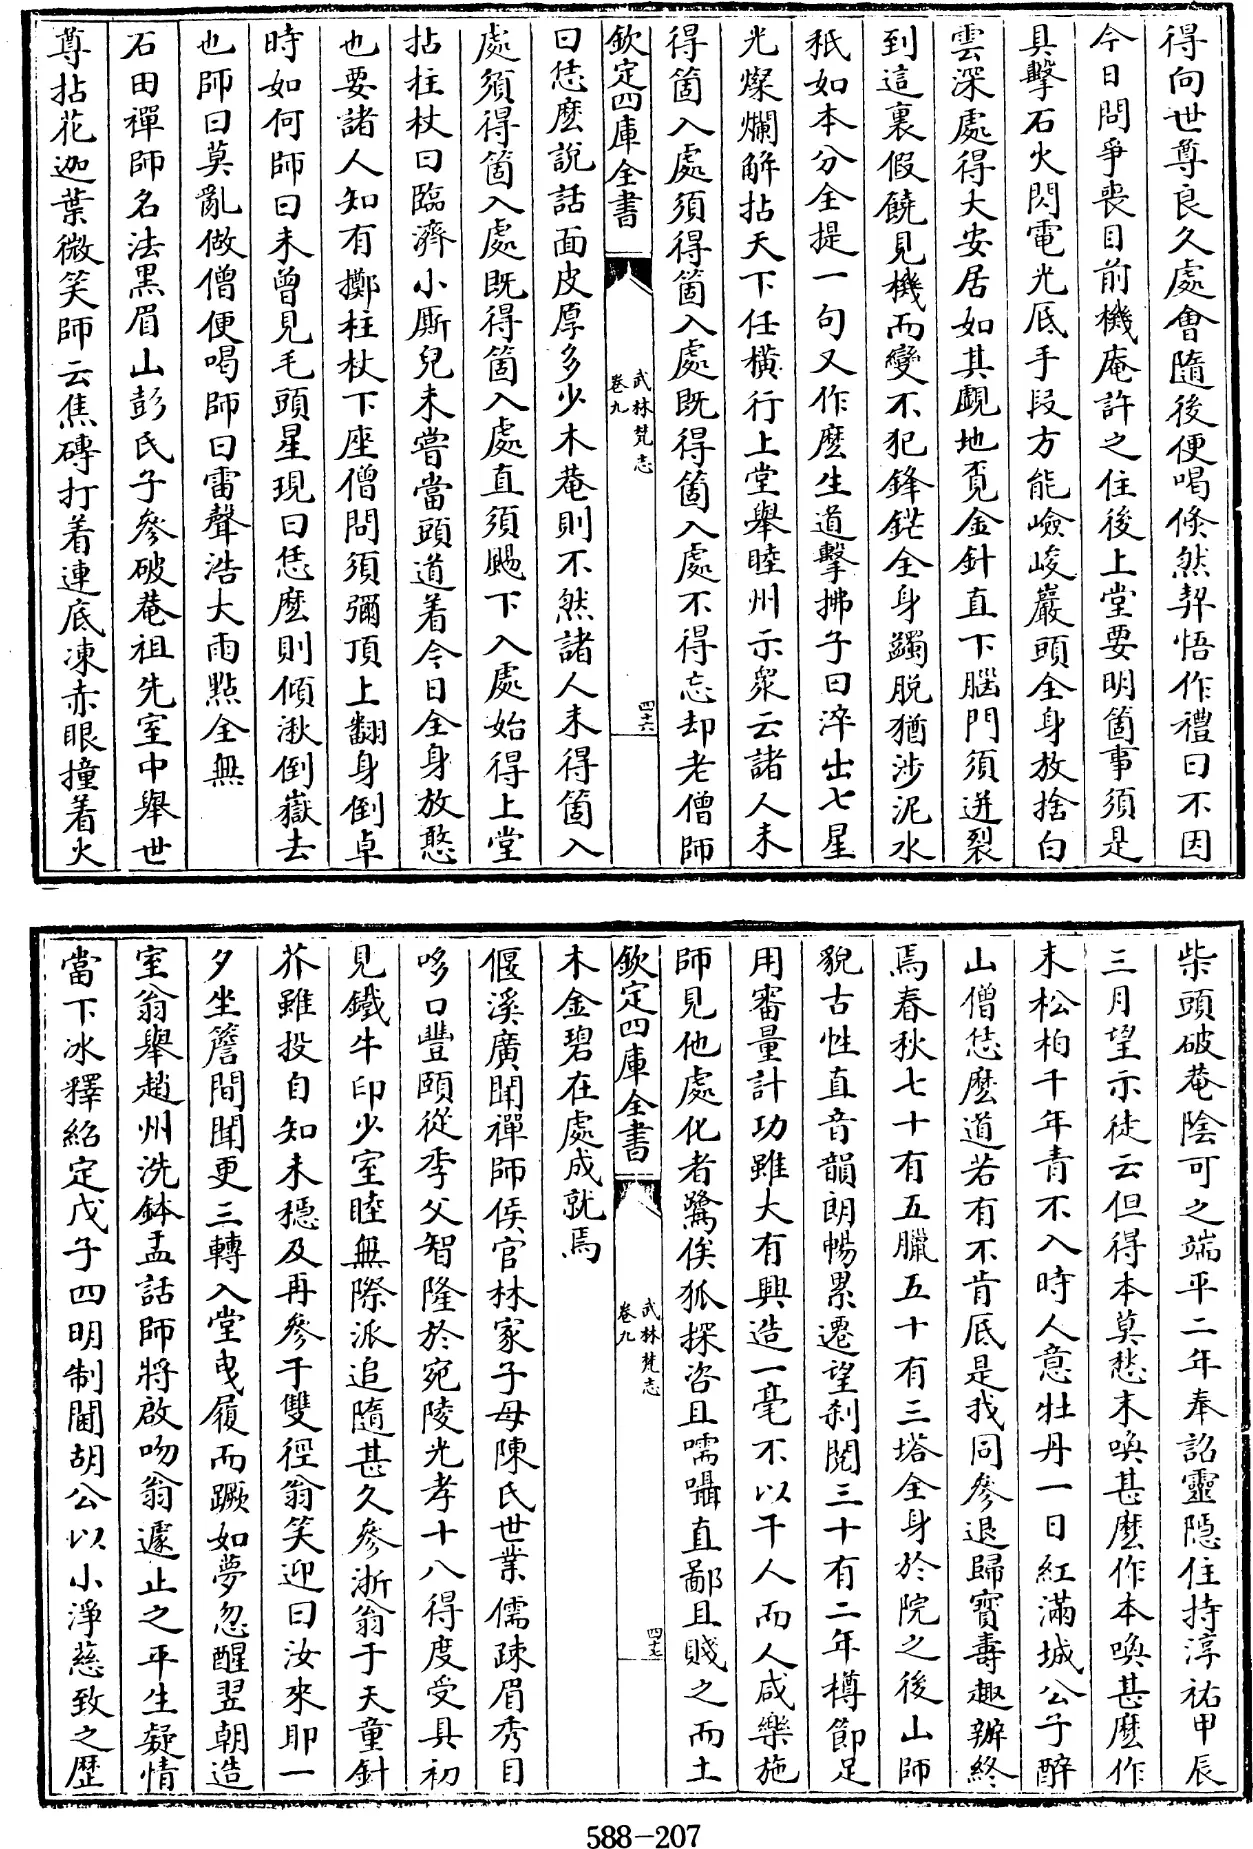 得向世尊良久處會隨後便喝倐然契悟作禮曰不因
今日問爭喪目前機庵許之住後上堂要明箇事須是
具擊石火閃電光底手段方能嶮峻巖頭全身放捨白
雲深處得大安居如其覷地覓金針直下腦門須迸裂
到這裏假饒見機而變不犯鋒鋩全身躅脱猶涉泥水
秖如本分全提一句又作麽生道擊拂子曰淬出七星
光燦爛解拈天下任横行上堂舉睦州示衆云諸人未
得箇入處須得箇入處既得箇入處不得忘却老僧師
欽定四庫全書
武林梵志
卷九
四十六
曰恁麽說話面皮厚多少木菴則不然諸人未得箇入
處須得箇入處既得箇入處直須颺下入處始得上堂
拈柱杖曰臨濟小厮兒未嘗當頭道着今日全身放憨
也要諸人知有擲柱杖下座僧問須彌頂上翻身倒卓
時如何師曰未曾見毛頭星現曰恁麽則傾湫倒嶽去
也師曰莫亂做僧便喝師曰雷聲浩大雨點全無
石田禪師名法黑眉山彭氏子參破菴祖先室中舉世
尊拈花迦葉微笑師云焦磚打着連底凍赤眼撞着火
柴頭破菴隂可之端平二年奉詔靈隠住持淳祐甲辰
三月望示徒云但得本莫愁末喚甚麽作本喚甚麽作
末松柏千年青不入時人意牡丹一日紅滿城公子醉
山僧恁麽道若有不肯底是我同參退歸寳壽趣辦終
焉春秋七十有五臘五十有三塔全身於院之後山師
貌古性直音韻朗暢累遷望刹閲三十有二年樽節足
用審量計功雖大有興造一毫不以干人而人咸樂施
師見他處化者鷺俟狐探咨且嚅囁直鄙且賤之而土
欽定四庫全書
武林梵志
卷九
四十七
木金碧在處成就焉
偃溪廣聞禪師侯官林家子母陳氏世業儒疎眉秀目
哆口豐頤從季父智隆於宛陵光孝十八得度受具初
見鐵牛印少室睦無際派追隨甚久參浙翁于天童針
芥雖投自知未穩及再參于雙徑翁笑迎曰汝來耶一
夕坐簷間聞更三轉入堂曳履而蹶如夢忽醒翌朝造
室翁舉趙州洗鉢盂話師將啟吻翁遽止之平生凝情
當下冰釋紹定戊子四明制閫胡公以小淨慈致之歴
588-207